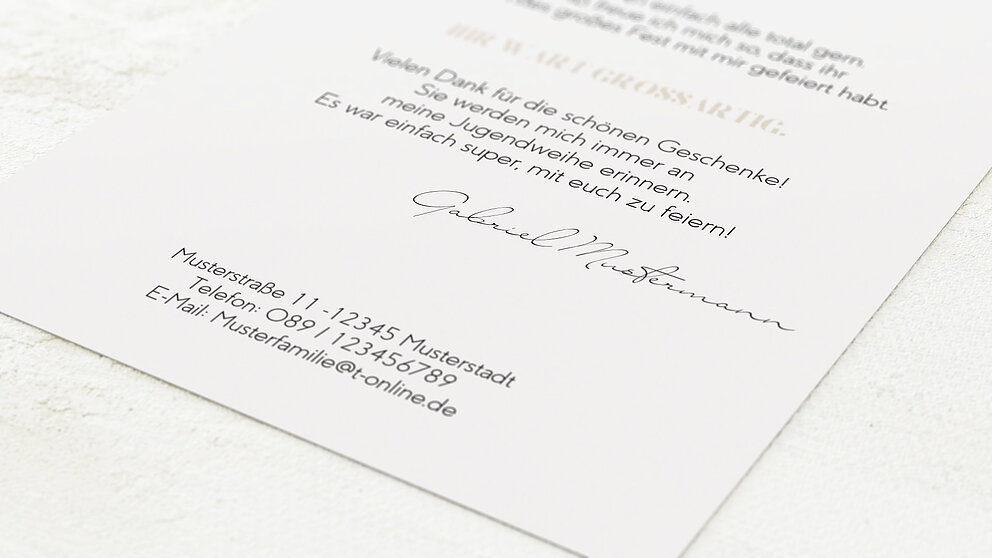 einfach alle total gern.
freue ich mich so, dass ihr
großes Fest mit mir gefeiert habt.
IHR WART GROSSARTIG.
Vielen Dank für die schönen Geschenke!
Sie werden mich immer an
meine Jugendweihe erinnern.
Es war einfach super, mit euch zu feiern!
Gabriel Mustermann
Musterstraße 11 -12345 Musterstadt
Telefon: 089 / 123456789
E-Mail: Musterfamilie@t-online.de